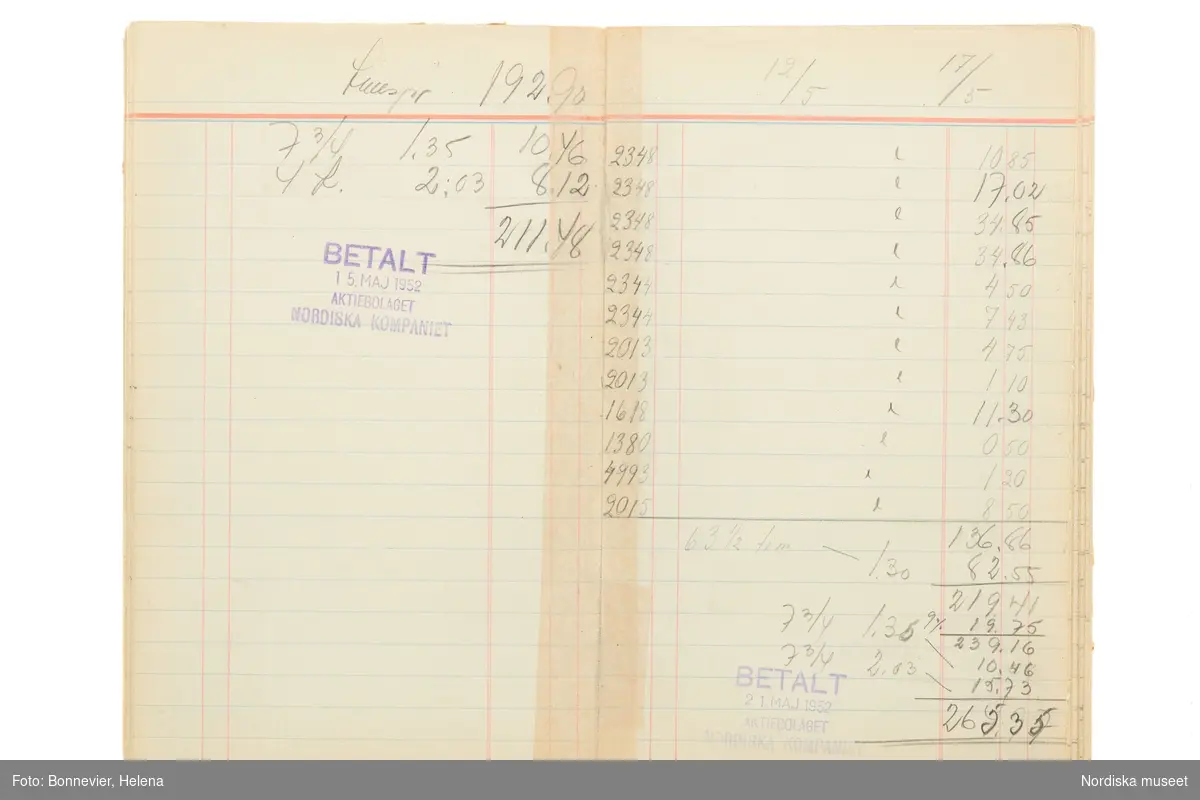 192.90
7 3/4 1.35 10.46
4 L. 2:03 8.12
211.48
BETALT
15. MAJ 1952
AKTIEBOLAGET
NORDISKA KOMPANIET
12/5 17/5
2348 10 85
2348 17.02
2348 34.85
2348 34.86
2344 4 50
2344 7 43
2013 4 75
2013 1 10
1618 11.30
1380 0 50
4993 1 20
2015 8 50
136.86
63 1/2 tim 1.30 82.55
219 41
9% 19.75
7 3/4 1.35 239.16
10.46
7 3/4 2.03 15.73
265.35
BETALT
21. MAJ 1952
AKTIEBOLAGET
NORDISKA KOMPANIET
Foto: Bonnevier, Helena
Nordiska museet